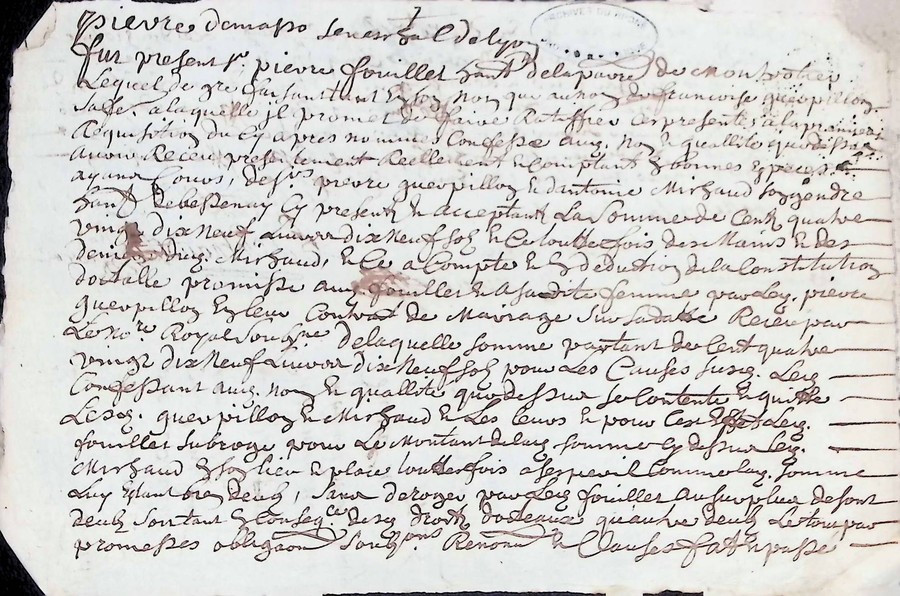 pierre demasso seneschal de lyon
fut present sr. pierre fouillet hantt de la parre de Montrotier
Lequel de gre faisant tant en son Nom que au nom de francoise guerpillon
sa fe. a laquelle jl promet de faire Ratiffier ces presentes a la premiere
Requisition du cy apres nommes Confesse auq. Nom et quallite que dessus
avoir Receu presentement Reellement et Comptant en bonnes especes
ayant Cours, des srs pierre guerpillon et dantoine Michaud son gendre
hantt de bessenay Cy presentt et acceptantt La Somme de Centt quatre
vingt dix Neuf Livres dix Neuf solz et Ce touttesfois des Mains et des
deniers dud. Michaud, et Ce a Compte et en deduction de la Constitution
dottalle promisse aud. fouillet et a sa ditte femme par Led. pierre
guerpillon en leur Contrat de Mariage sur sa datte Receu par
Le No.re Royal Sousne de laquelle somme partant de Cent quatre
vingt dix Neuf Livres dix Neuf solz pour Les Causes susd. Led.
Confessant auq. Nom et quallite que dessus se Contente et quitte
Lesd. guerpillon et Michaud et Les leurs et pour Cest effet Led.
fouillet subroge pour Le Montant de lad. somme cy dessus Led.
Michaud en son lieu et place touttesfois a ses peril Comme lad. somme
Luy estant bien deub, sans deroger par Led. fouillet au surplus de son
deub sontant et Conseqce. de sd. droitz dotteaux qu'autre deub Le tout par
promesses obligaon Soubz.ons Renonn et Clauses fait et passe